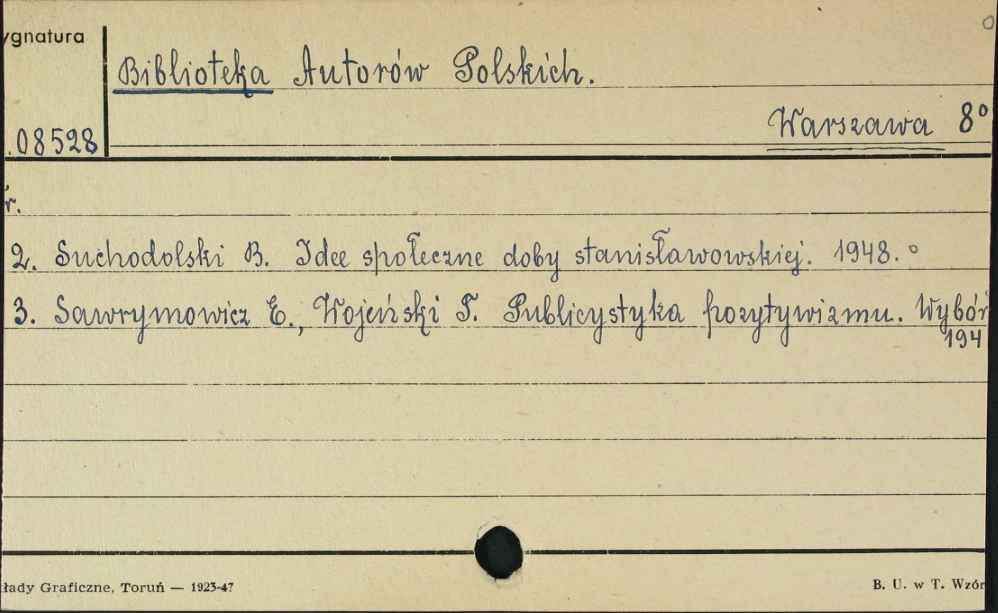 ygnatura
Biblioteka Autorów Polskich.
Warszawa 8°
.08528
r.
2. Suchodolski B. Idee społeczne doby stanisławowskiej. 1948.°
3. Sawrymowicz E., Wojeński T. Publicystyka pozytywizmu. Wybór
194
łady Graficzne, Toruń — 1923-47
B. U. w T. Wzór